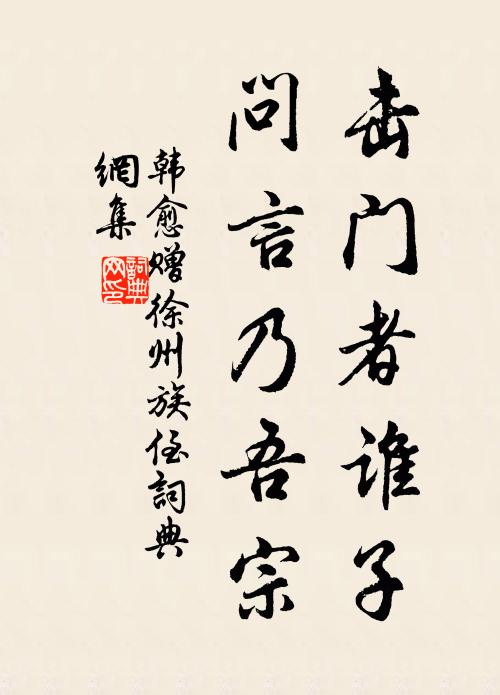 击门者谁子
问言乃吾宗
韩愈赠徐州族侄詞典
網集
詞典网印